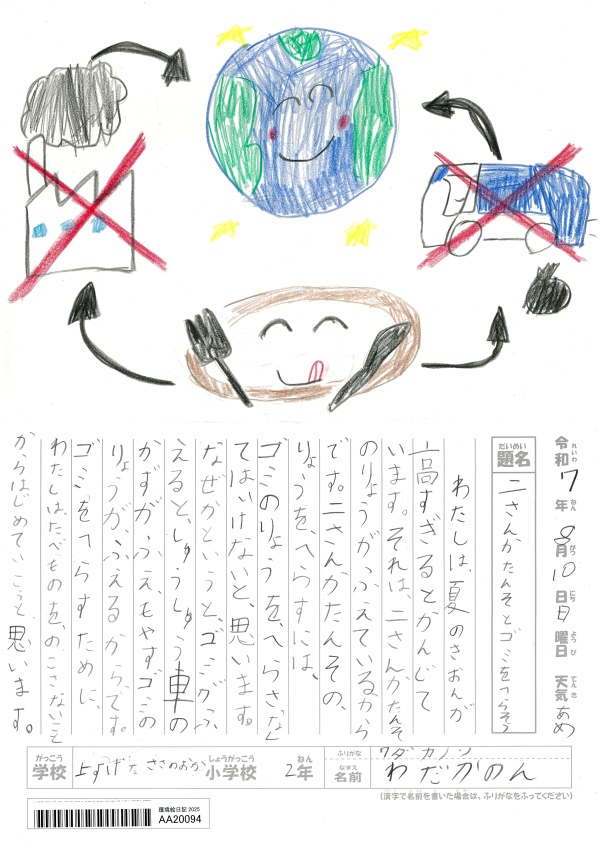 令和7年8月10日日曜日 天気あめ
題名 二さんかたんそとゴミをへらそう
わたしは、夏のきおんが
高すぎるとかんじて
います。それは、二さんかたんそ
のりょうがふえているから
です。二さんかたんその、
りょうを、へらすには、
ゴミのりょうを、へらさなく
てはいけないと、思います。
なぜかというと、ゴミがふ
えると、しゅうしゅう車の
かずがふえ、もやすゴミの
りょうが、ふえるからです。
ゴミをへらすために、
わたしは、たべものを、のこさないこと
からはじめていこうと、思います。
学校 上すげた ささのおか 小学校 2年
ふりがな ワダ カノン
名前 わだかのん
(漢字で名前を書いた場合は、ふりがなをふってください)
環境絵日記 2025
AA20094